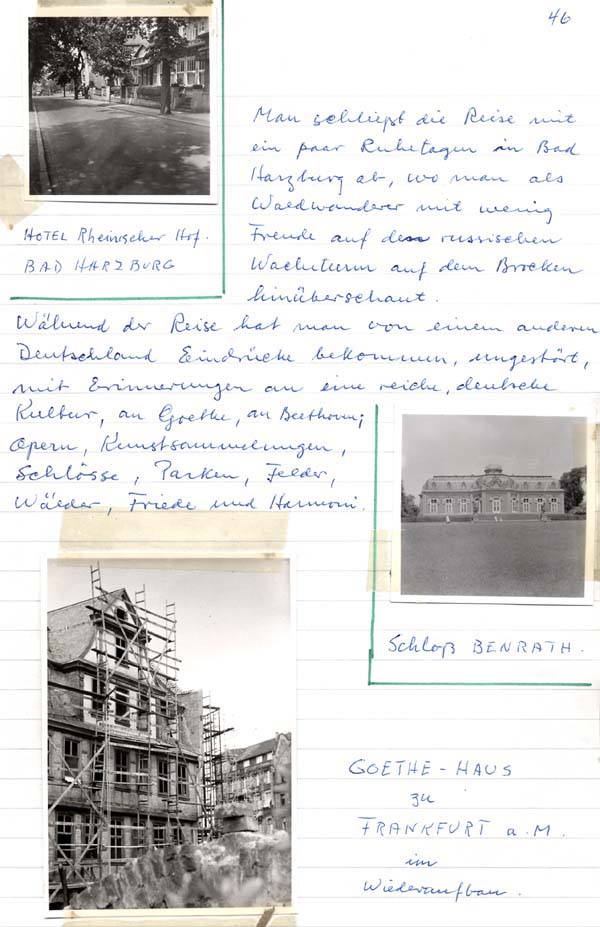 46
Man schließt die Reise mit
ein paar Ruhetagen in Bad
Harzburg ab, wo man als
Waldwanderer mit wenig
Freude auf den russischen
Wachturm auf dem Brocken
hinüberschaut.
HOTEL Rheinischer Hof.
BAD HARZBURG
Während der Reise hat man von einem anderen
Deutschland Eindrücke bekommen, ungestört,
mit Erinnerungen an eine reiche, deutsche
Kultur, an Goethe, an Beethoven;
Opern, Kunstsammlungen,
Schlösse, Parken, Felder,
Wälder, Friede und Harmoni.
Schloß BENRATH.
GOETHE-HAUS
zu
FRANKFURT a.M.
im
Wiederaufbau.